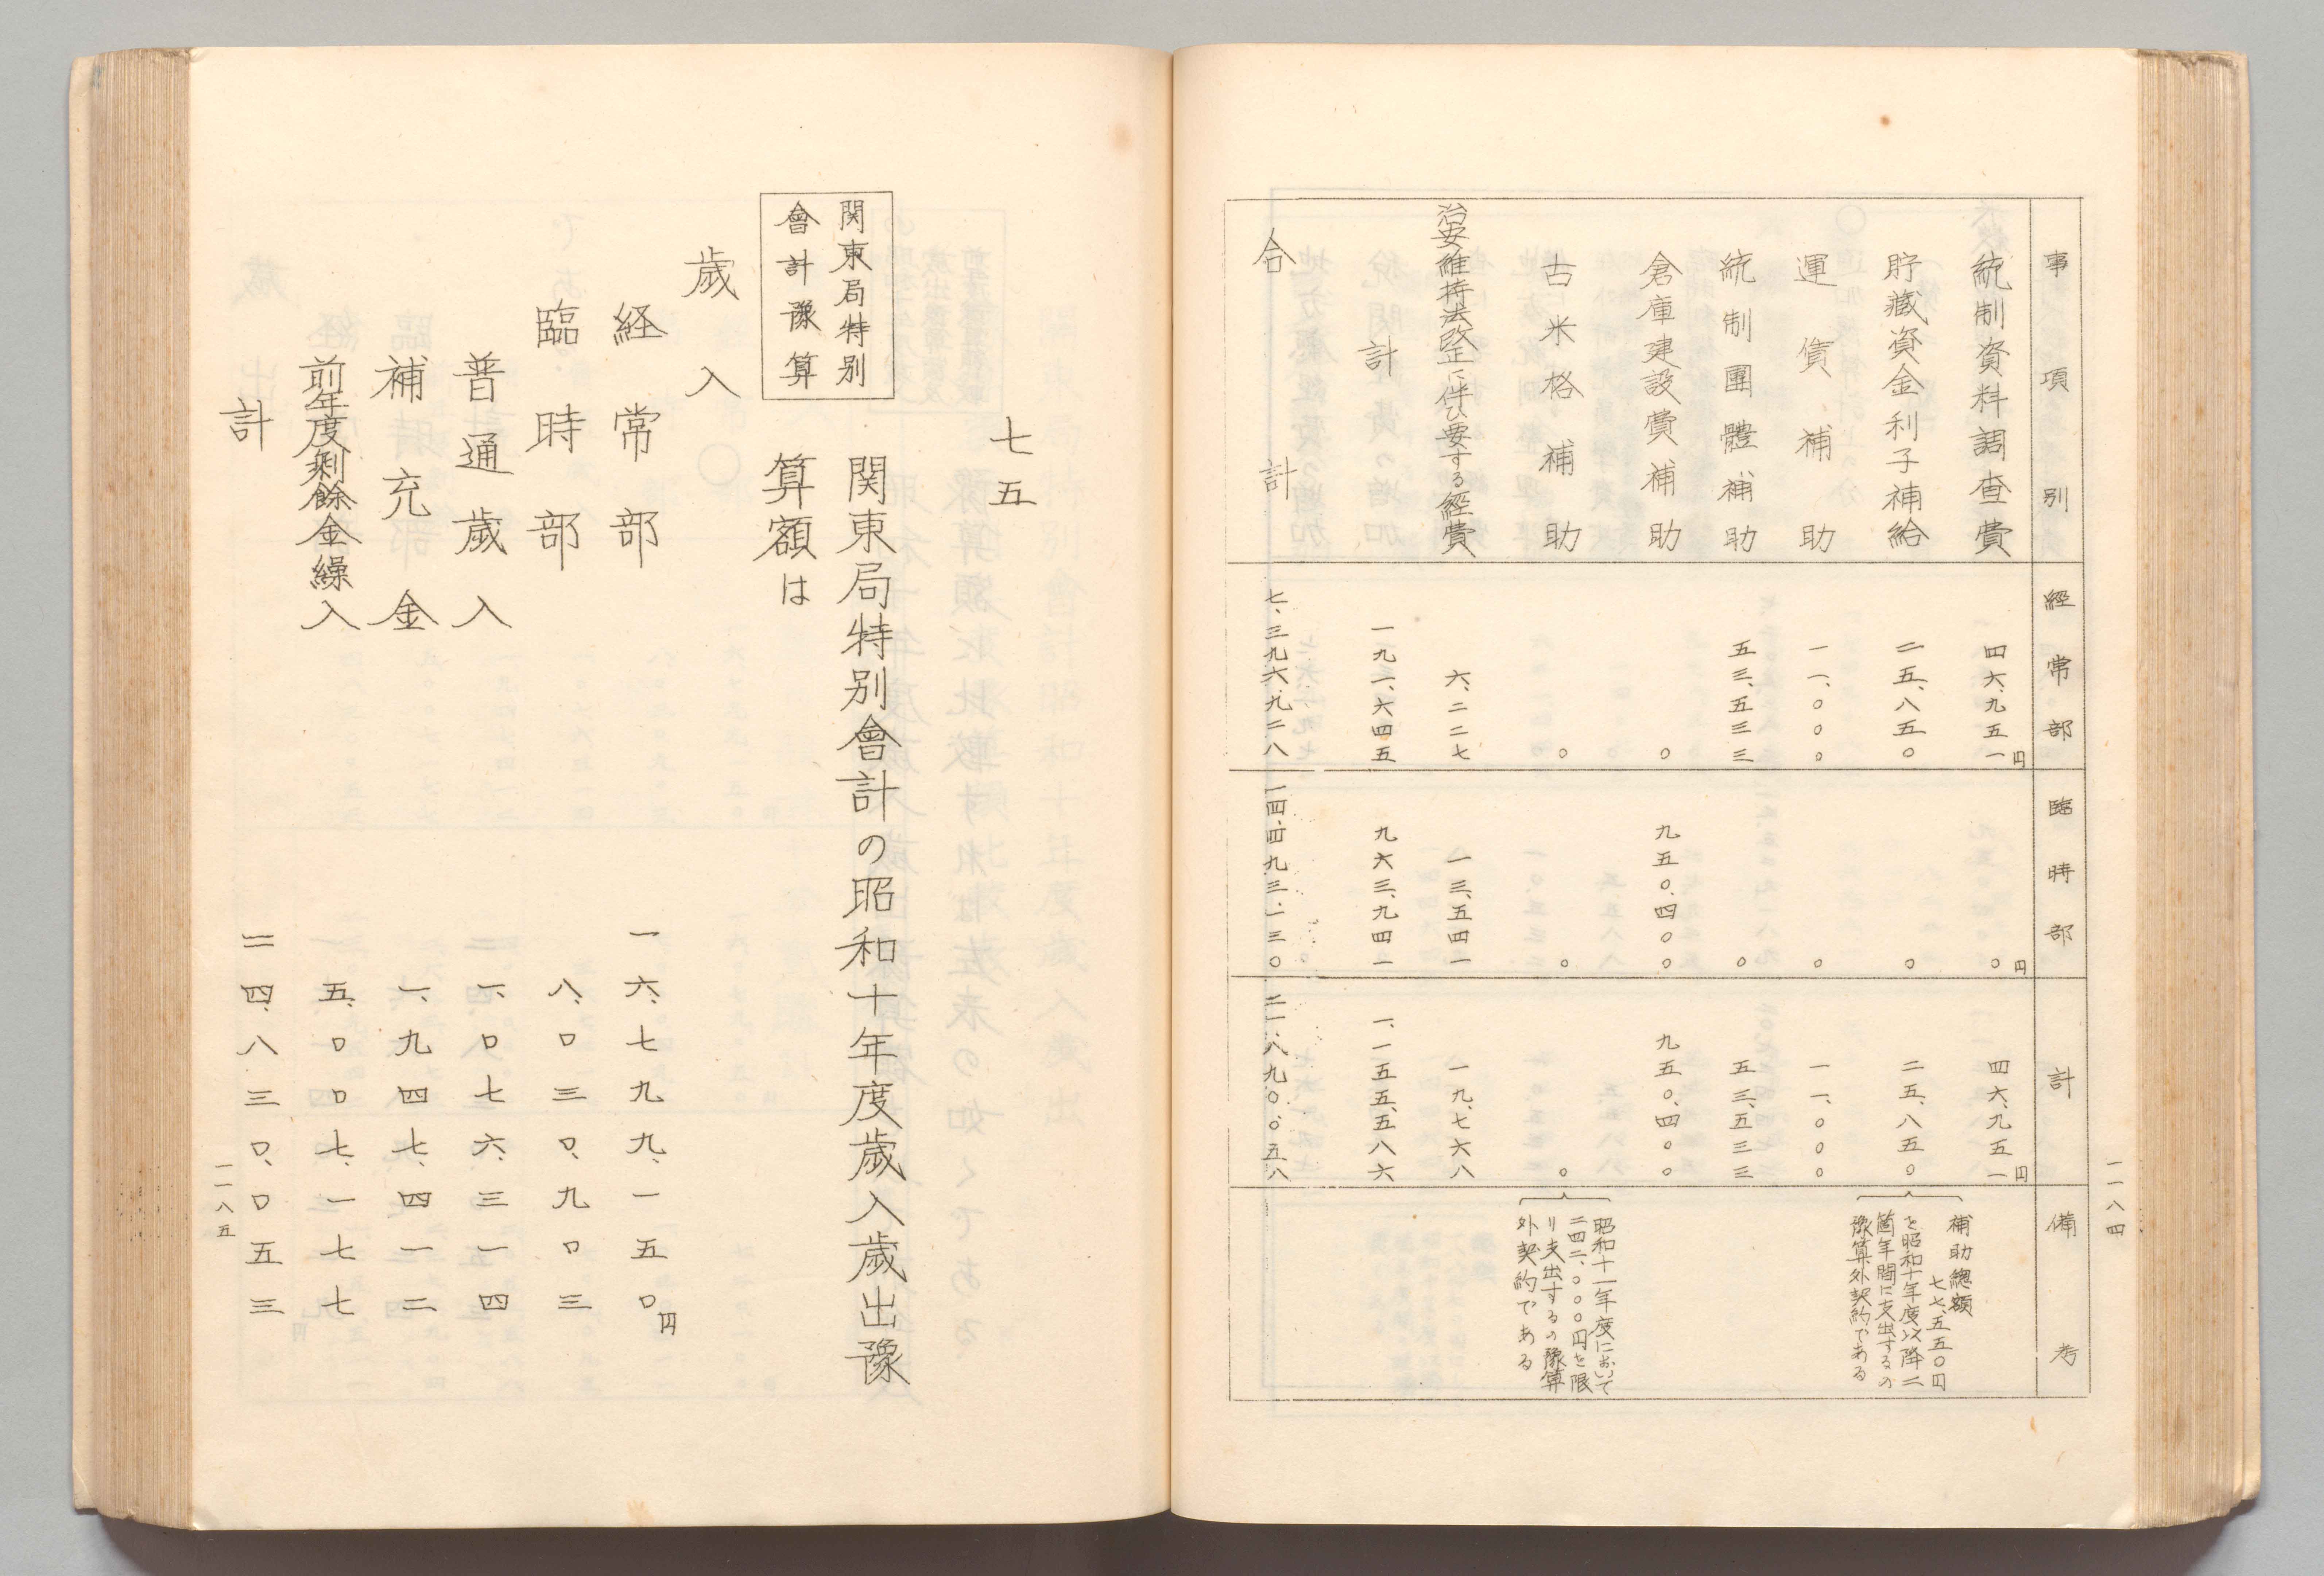 一一八四
事項別 経常部 臨時部 計 備考
統制資料調査費 四六、九五一円 〇円 四六、九五一円
貯藏資金利子補給 二五、八五〇 〇 二五、八五〇
運賃補助 一一、〇〇〇 〇 一一、〇〇〇
統制團體補助 五三、五三三 〇 五三、五三三
倉庫建設費補助 〇 九五〇、四〇〇 九五〇、四〇〇
古米格補助 〇 〇 〇
治安維持法改正に伴ひ要する経費 六、二二七 一三、五四一 一九、七六八
計 一九一、六四五 九六三、九四一 一、一五五、五八六
合計 七、三九六、九二八 一四、四九三、一三〇 二一、八九〇、〇五八
補助總額
七七、五五〇円
を昭和十年度以降二
箇年間に支出するの
豫算外契約である
昭和十一年度において
二四二、〇〇〇円を限
り支出するの豫算
外契約である
七五
関東局特別
會計豫算
関東局特別會計の昭和十年度歳入歳出豫
算額は
歳入
経常部 一六、七九九、一五〇円
臨時部 八、〇三〇、九〇三
普通歳入 一、〇七六、三一四
補充金 一、九四七、四一二
前年度剰餘金繰入 五、〇〇七、一七七
計 二四、八三〇、〇五三
一一八五